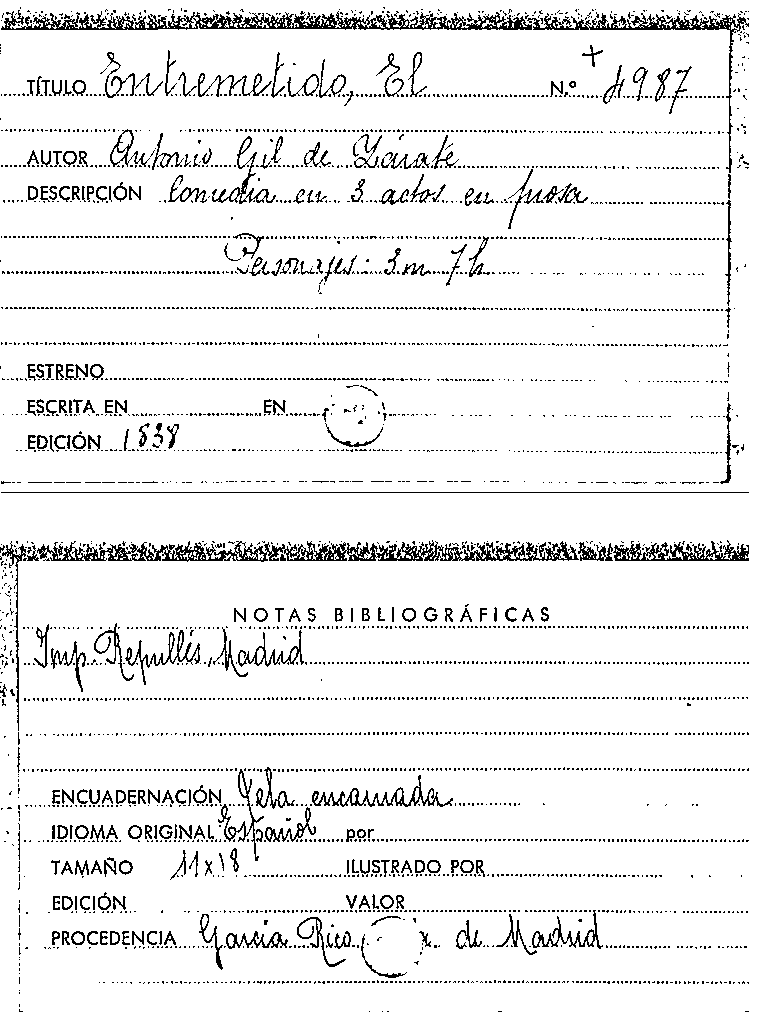 TÍTULO Entremetido, El N.º + 4987
AUTOR Antonio Gil de Zárate
DESCRIPCIÓN Comedia en 3 actos en prosa
Personajes: 3 m 7 h
ESTRENO
ESCRITA EN EN
EDICIÓN 1838
NOTAS BIBLIOGRÁFICAS
Imp. Repullés, Madrid
ENCUADERNACIÓN Tela encarnada
IDIOMA ORIGINAL Español por
TAMAÑO 11x18 ILUSTRADO POR
EDICIÓN VALOR
PROCEDENCIA García Rico, de Madrid